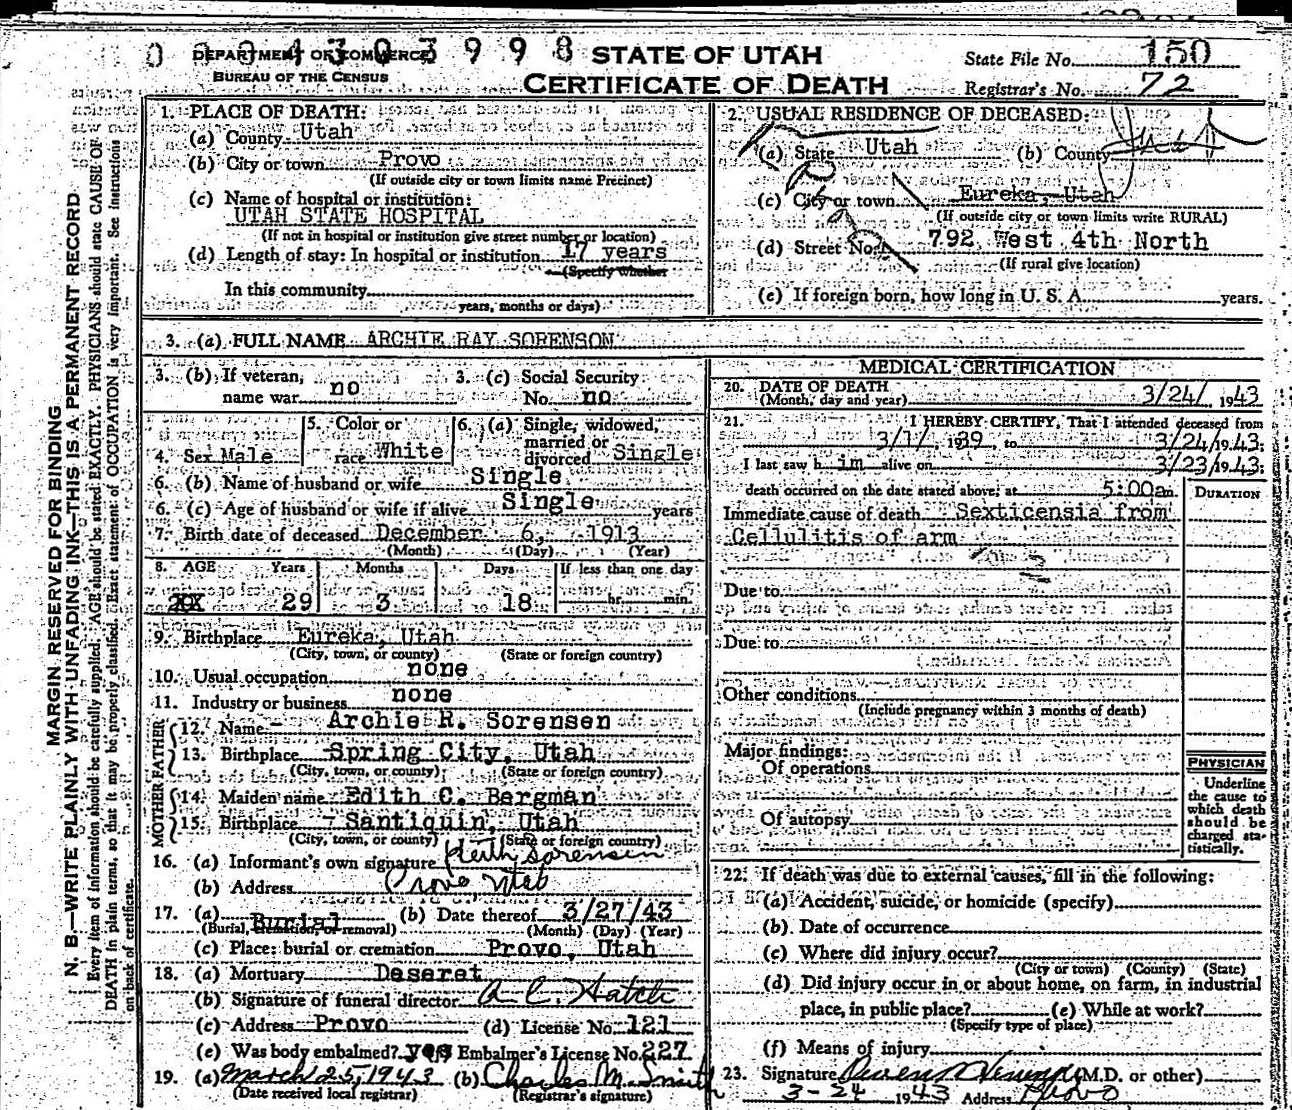 0004303998
DEPARTMENT OF COMMERCE
BUREAU OF THE CENSUS
STATE OF UTAH
CERTIFICATE OF DEATH
State File No. 150
Registrar's No. 72
MARGIN RESERVED FOR BINDING
N. B.—WRITE PLAINLY WITH UNFADING INK—THIS IS A PERMANENT RECORD
Every item of information should be carefully supplied. AGE should be stated EXACTLY. PHYSICIANS should state CAUSE OF
DEATH in plain terms, so that it may be properly classified. Exact statement of OCCUPATION is very important. See instructions
on back of certificate.
1. PLACE OF DEATH:
(a) County Utah
(b) City or town Provo
(If outside city or town limits name Precinct)
(c) Name of hospital or institution:
UTAH STATE HOSPITAL
(If not in hospital or institution give street number or location)
(d) Length of stay: In hospital or institution 17 years
(Specify whether
In this community
years, months or days)
2. USUAL RESIDENCE OF DECEASED:
(a) State Utah (b) County Utah
(c) City or town Eureka, Utah
(If outside city or town limits write RURAL)
(d) Street No. 792 West 4th North
(If rural give location)
(e) If foreign born, how long in U. S. A. years.
3. (a) FULL NAME ARCHIE RAY SORENSON
3. (b) If veteran, name war no
3. (c) Social Security No. no
4. Sex Male
5. Color or race White
6. (a) Single, widowed, married or divorced Single
6. (b) Name of husband or wife Single
6. (c) Age of husband or wife if alive Single years
7. Birth date of deceased December 6, 1913
(Month) (Day) (Year)
8. AGE Years Months Days If less than one day
29 3 18 hr. min.
9. Birthplace Eureka, Utah
(City, town, or county) (State or foreign country)
10. Usual occupation none
11. Industry or business none
FATHER
12. Name Archie R. Sorensen
13. Birthplace Spring City, Utah
(City, town, or county) (State or foreign country)
MOTHER
14. Maiden name Edith C. Bergman
15. Birthplace Santiquin, Utah
(City, town, or county) (State or foreign country)
16. (a) Informant's own signature Keith Sorensen
(b) Address Provo Utah
17. (a) Burial (b) Date thereof 3/27/43
(Burial, cremation, or removal) (Month) (Day) (Year)
(c) Place: burial or cremation Provo, Utah
18. (a) Mortuary Deseret
(b) Signature of funeral director A C. Hatch
(c) Address Provo (d) License No. 121
(e) Was body embalmed? yes Embalmer's License No. 227
19. (a) March 25, 1943 (b) Charles M. Smith
(Date received local registrar) (Registrar's signature)
MEDICAL CERTIFICATION
20. DATE OF DEATH
(Month, day and year) 3/24/ 1943
21. I HEREBY CERTIFY, That I attended deceased from
3/1/ 1939 to 3/24/1943;
I last saw h im alive on 3/23/1943;
death occurred on the date stated above, at 5:00am.
DURATION
Immediate cause of death Sexticensia from
Cellulitis of arm
Due to
Due to
Other conditions
(Include pregnancy within 3 months of death)
Major findings:
Of operations
Of autopsy
PHYSICIAN
Underline
the cause to
which death
should be
charged sta-
tistically.
22. If death was due to external causes, fill in the following:
(a) Accident, suicide, or homicide (specify)
(b) Date of occurrence
(c) Where did injury occur?
(City or town) (County) (State)
(d) Did injury occur in or about home, on farm, in industrial
place, in public place? (e) While at work?
(Specify type of place)
(f) Means of injury
23. Signature (M.D. or other)
3-24 1943 Address Provo